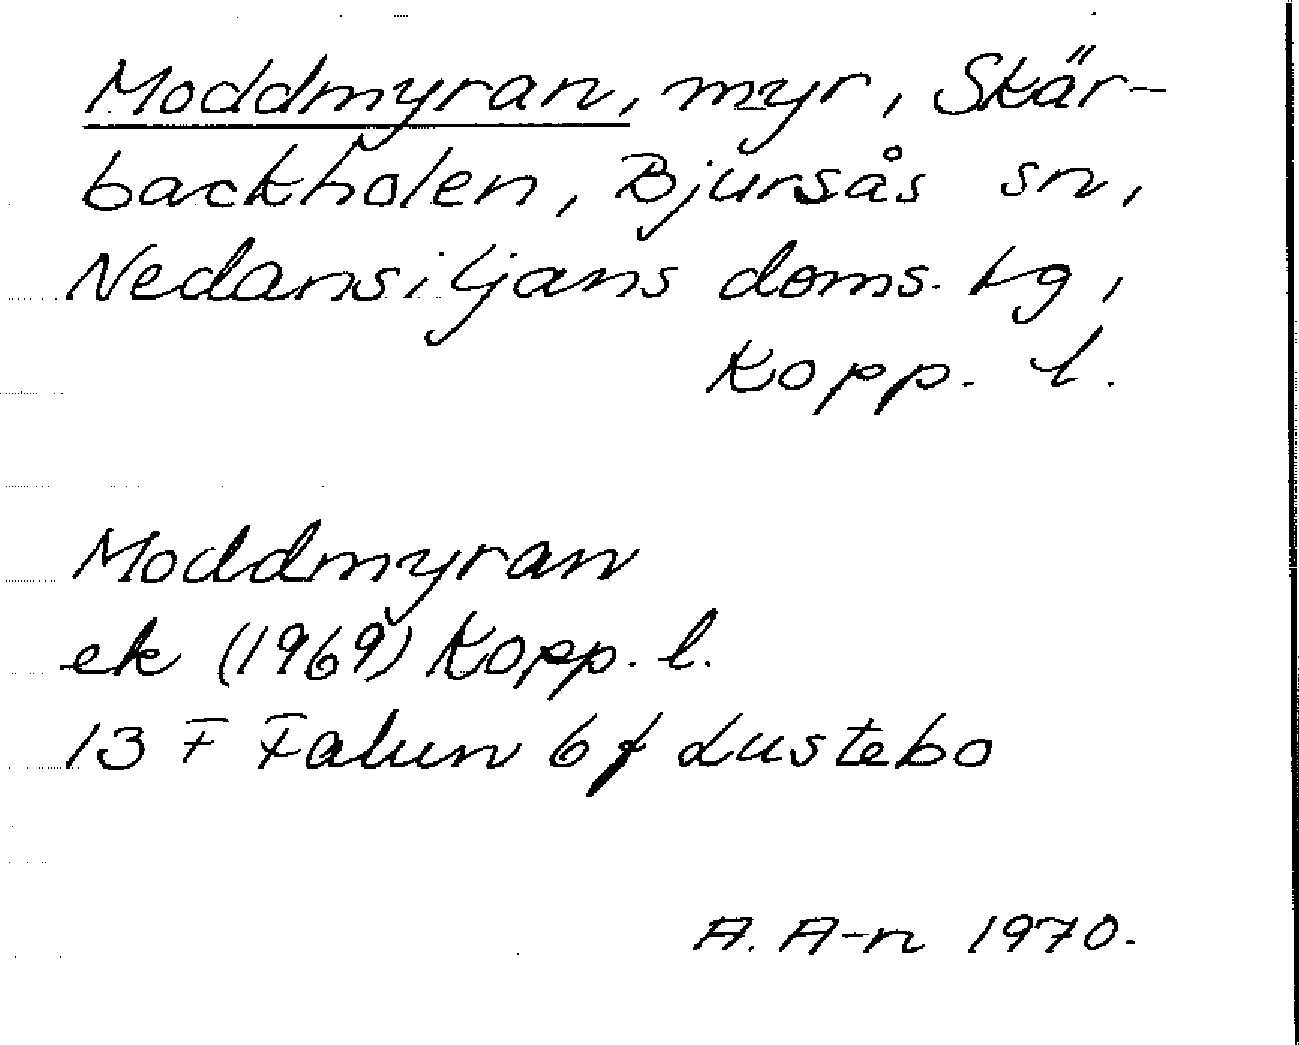 Moddmyran, myr, Skär-
backholen, Bjursås sn,
Nedansiljans doms. lg,
Kopp. l.
Moddmyran
ek (1969) Kopp. l.
13 F Falun 6 f Lustebo
A. A-n 1970.